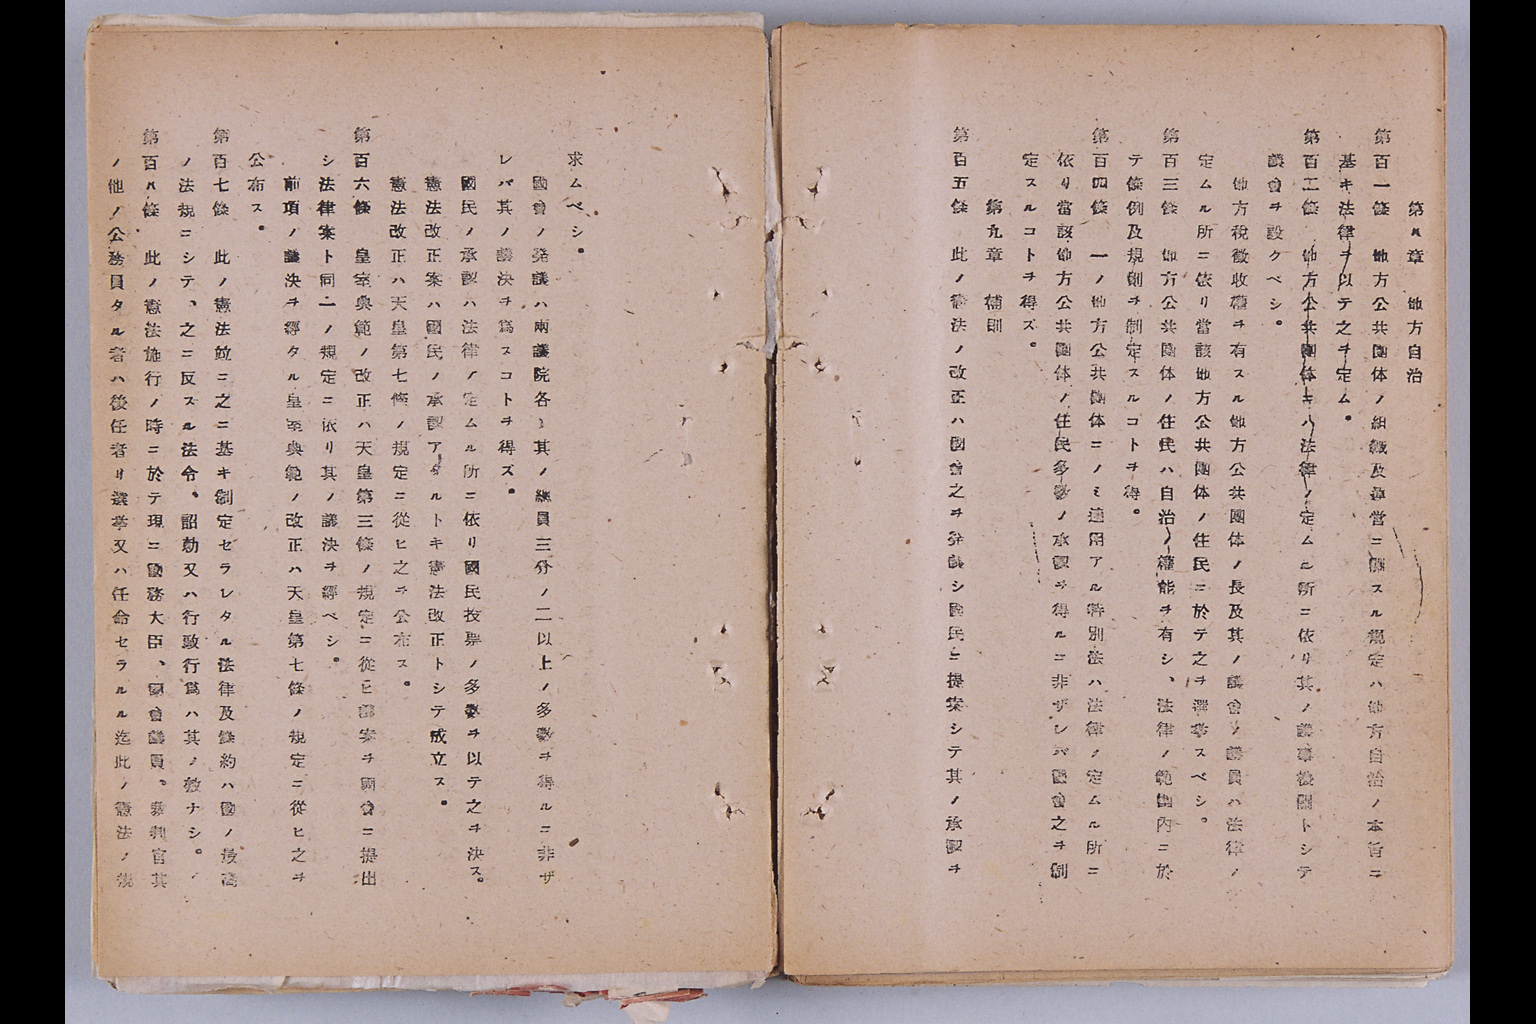 第八章　地方自治
第百一條　地方公共團体ノ組織及運営ニ關スル規定ハ地方自治ノ本旨ニ
基キ法律ヲ以テ之ヲ定ム。
第百二條　地方公共團体ニハ法律ノ定ムル所ニ依リ其ノ議事機關トシテ
議會ヲ設クベシ。
地方税徴收權ヲ有スル地方公共團体ノ長及其ノ議會ノ議員ハ法律ノ
定ムル所ニ依リ當該地方公共團体ノ住民ニ於テ之ヲ選挙スベシ。
第百三條　地方公共團体ノ住民ハ自治ノ權能ヲ有シ、法律ノ範圍内ニ於
テ條例及規則ヲ制定スルコトヲ得。
第百四條　一ノ地方公共團体ニノミ適用アル特別法ハ法律ノ定ムル所ニ
依リ當該地方公共團体ノ住民多数ノ承認ヲ得ルニ非ザレバ國會之ヲ制
定スルコトヲ得ズ。
第九章　補則
第百五條　此ノ憲法ノ改正ハ國會之ヲ発議シ國民ニ提案シテ其ノ承認ヲ
求ムベシ。
國會ノ発議ハ兩議院各〻其ノ總員三分ノ二以上ノ多数ヲ得ルニ非ザ
レバ其ノ議決ヲ爲スコトヲ得ズ。
國民ノ承認ハ法律ノ定ムル所ニ依リ國民投票ノ多数ヲ以テ之ヲ決ス。
憲法改正案ハ國民ノ承認アタルトキ憲法改正トシテ成立ス。
憲法改正ハ天皇第七條ノ規定ニ從ヒ之ヲ公布ス。
第百六條　皇室典範ノ改正ハ天皇第三條ノ規定ニ從ヒ議案ヲ國會ニ提出
シ法律案ト同一ノ規定ニ依リ其ノ議決ヲ經ベシ。
前項ノ議決ヲ經タル皇室典範ノ改正ハ天皇第七條ノ規定ニ從ヒ之ヲ
公布ス。
第百七條　此ノ憲法竝ニ之ニ基キ制定セラレタル法律及條約ハ國ノ最高
ノ法規ニシテ、之ニ反スル法令、詔勅又ハ行政行爲ハ其ノ効ナシ。
第百八條　此ノ憲法施行ノ時ニ於テ現ニ國務大臣、國會議員、裁判官其
ノ他ノ公務員タル者ハ後任者リ選挙又ハ任命セラルル迄此ノ憲法ノ規